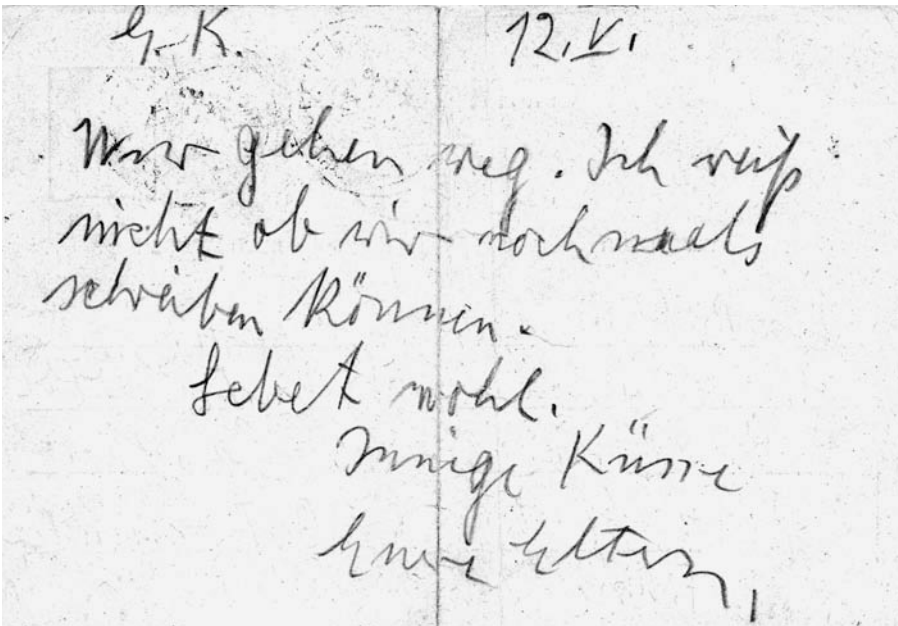 G. K. 12. V.
Wir gehen weg. Ich weiß
nicht ob wir nochmals
schreiben können.
Lebet wohl.
Innige Küsse
Eure Eltern,